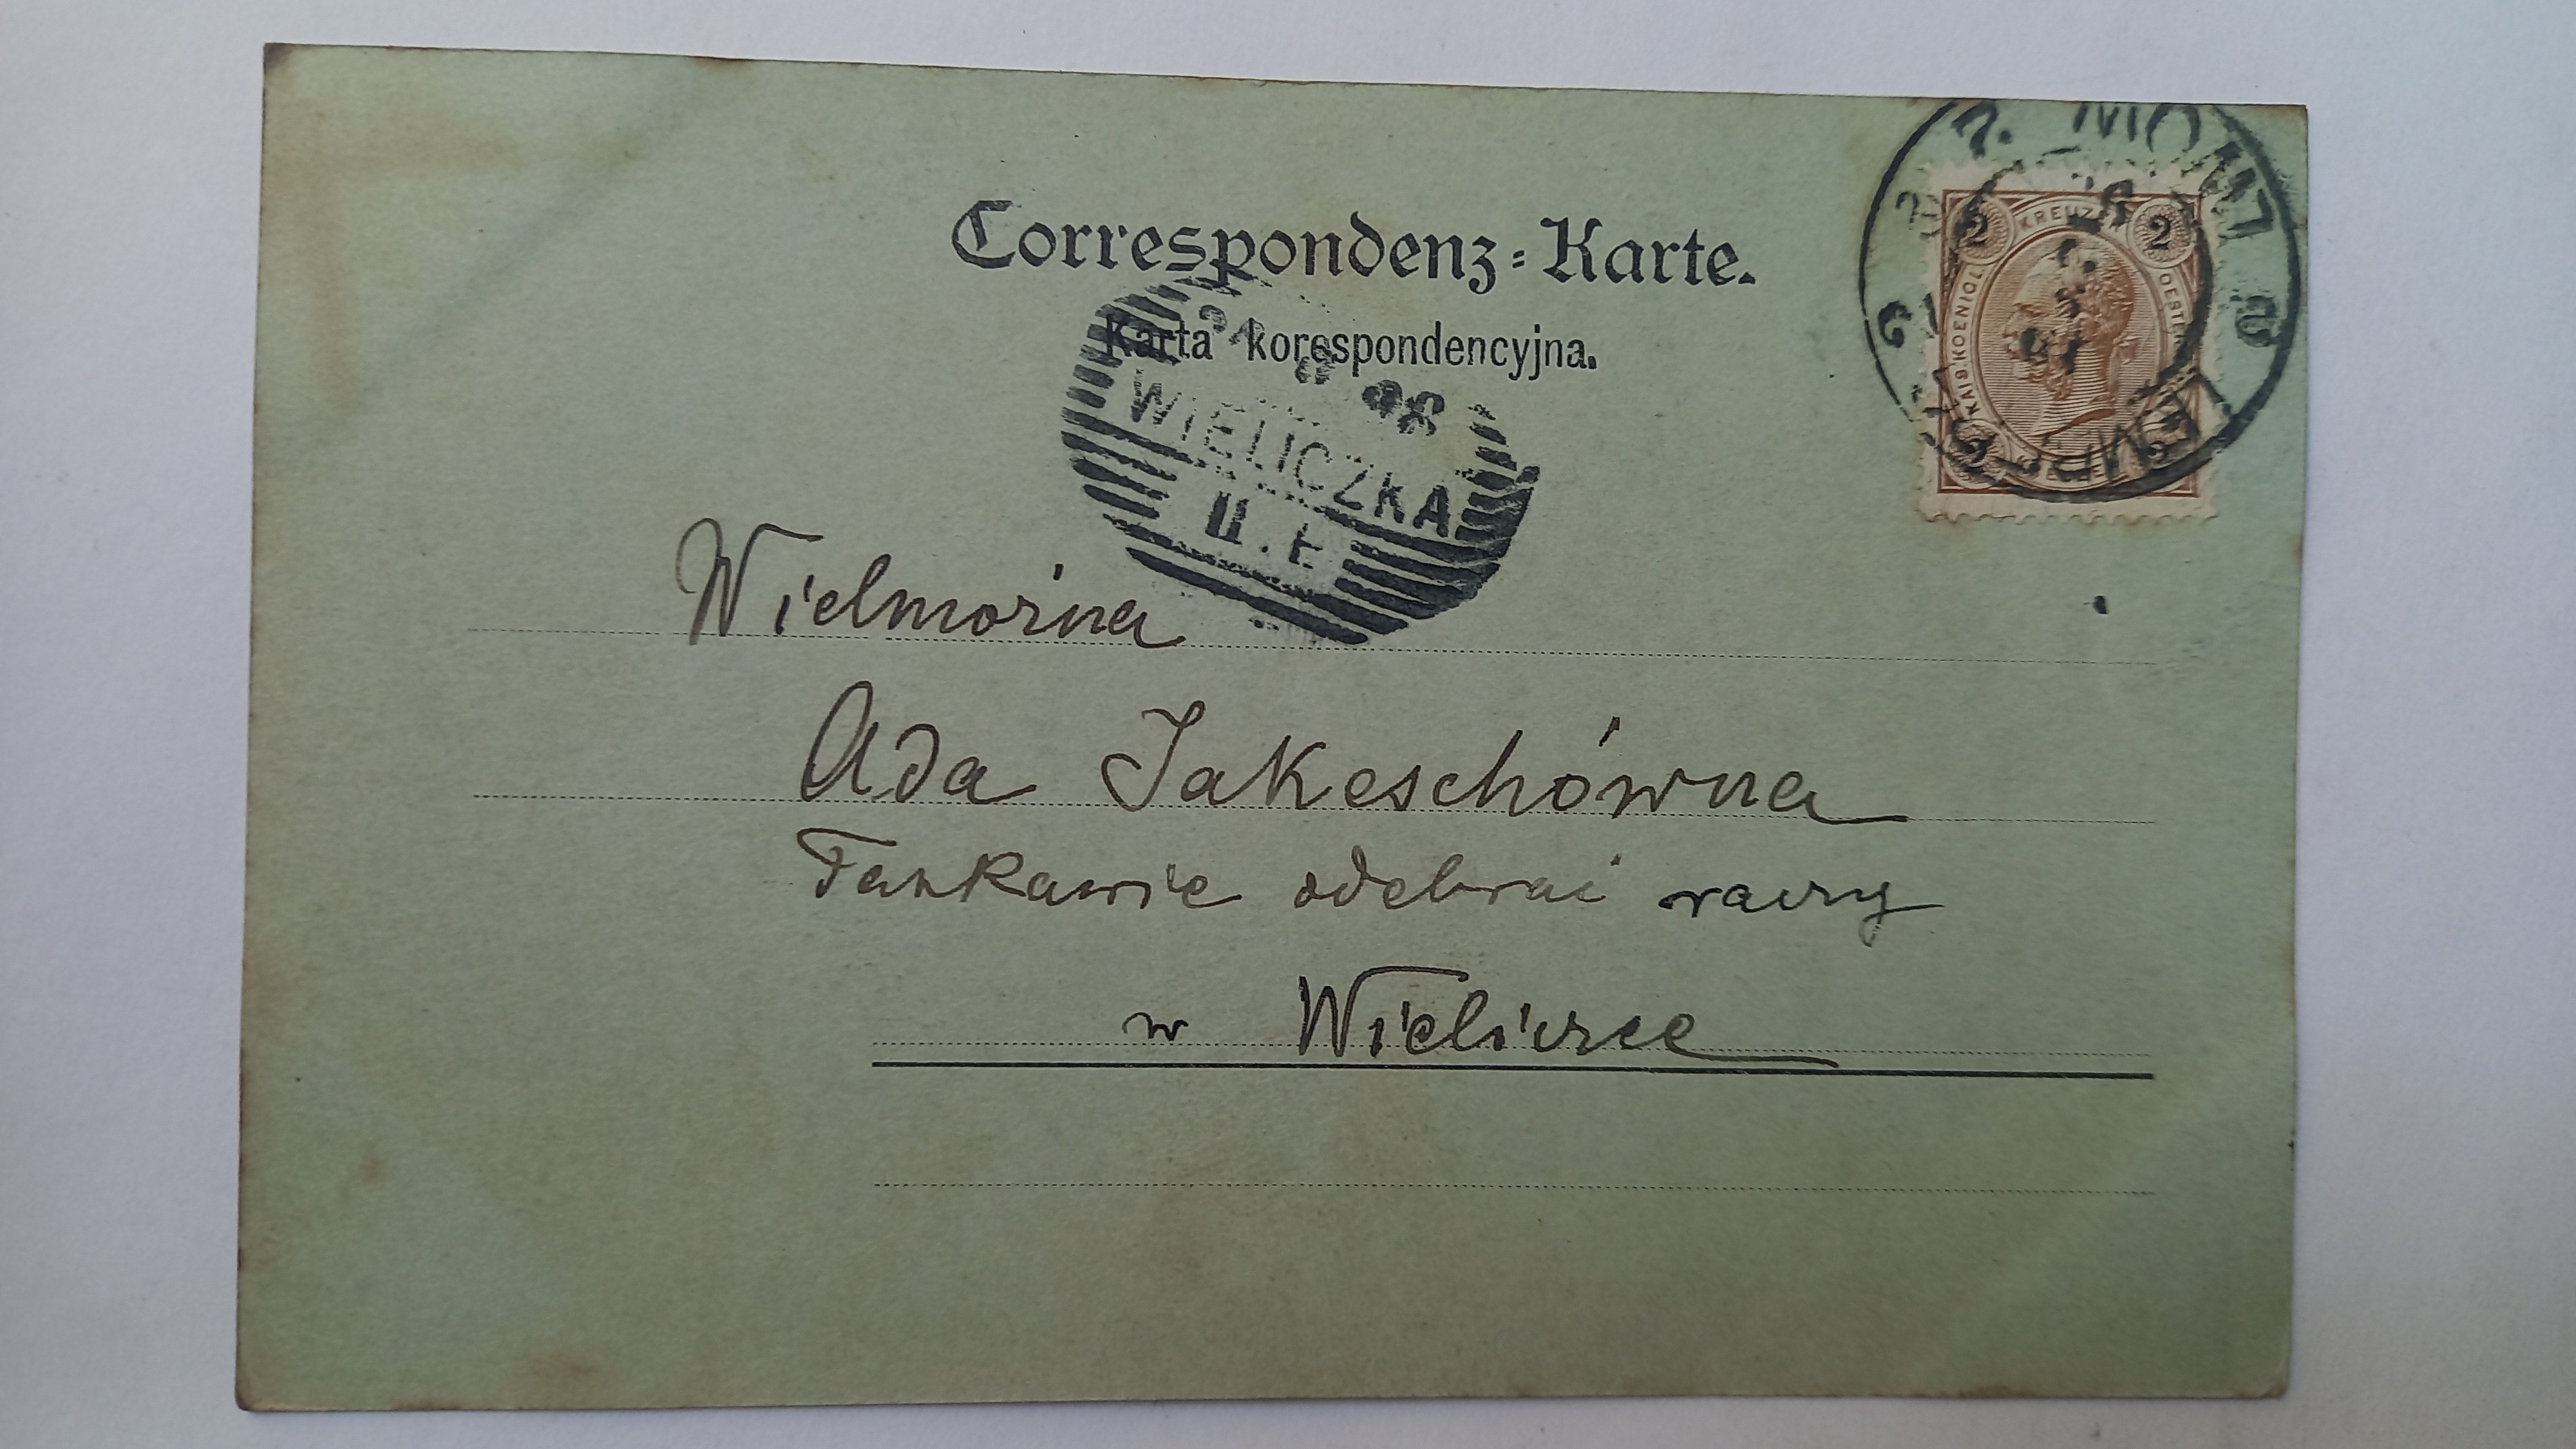 Correspondenz-Karte.
Karta korespondencyjna.
98
WIELICZKA
KREUZER
2 2
KAIS. KOENIGL.
Wielmożna
Ada Jakeschówna
Łaskawie odebrać raczy
w Wieliczce